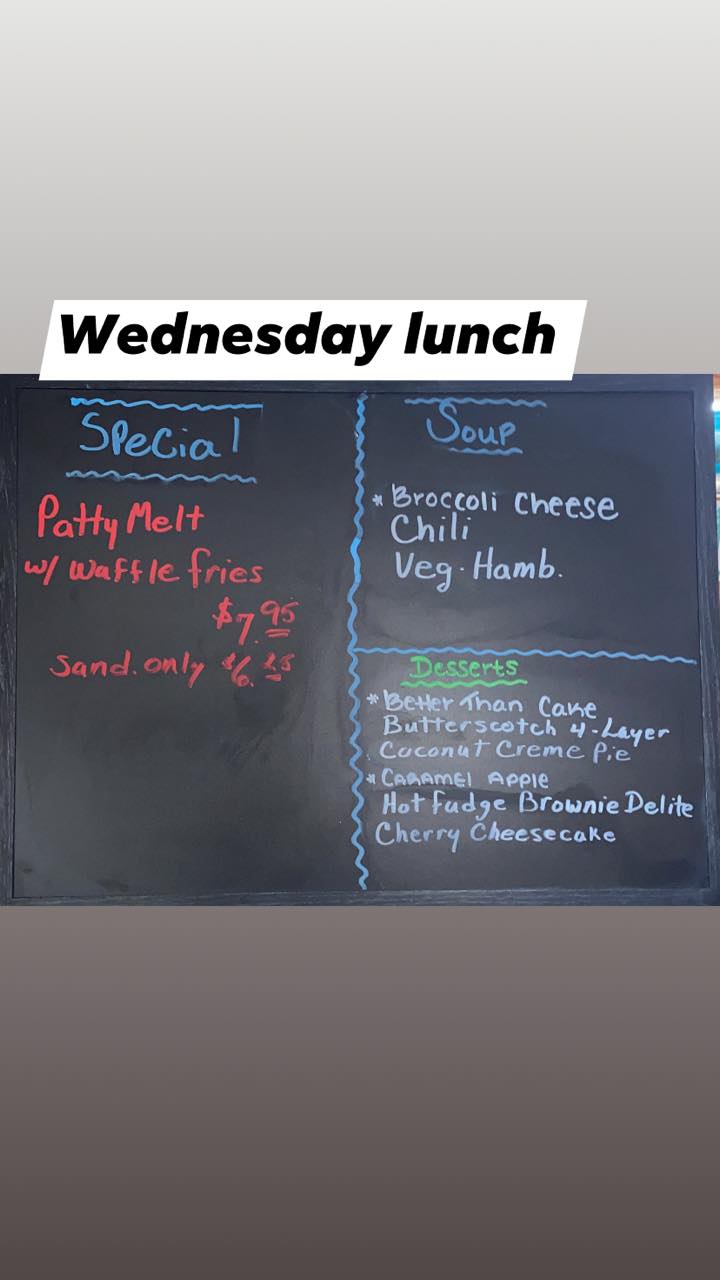 Wednesday lunch
Special
Patty Melt
w/ Waffle fries
$7.95
Sand. only $6.25
Soup
* Broccoli Cheese
Chili
Veg. Hamb.
Desserts
* Better Than Cake
Butterscotch 4-Layer
Coconut Creme Pie
* CARAMEL APPLE
Hot Fudge Brownie Delite
Cherry Cheesecake